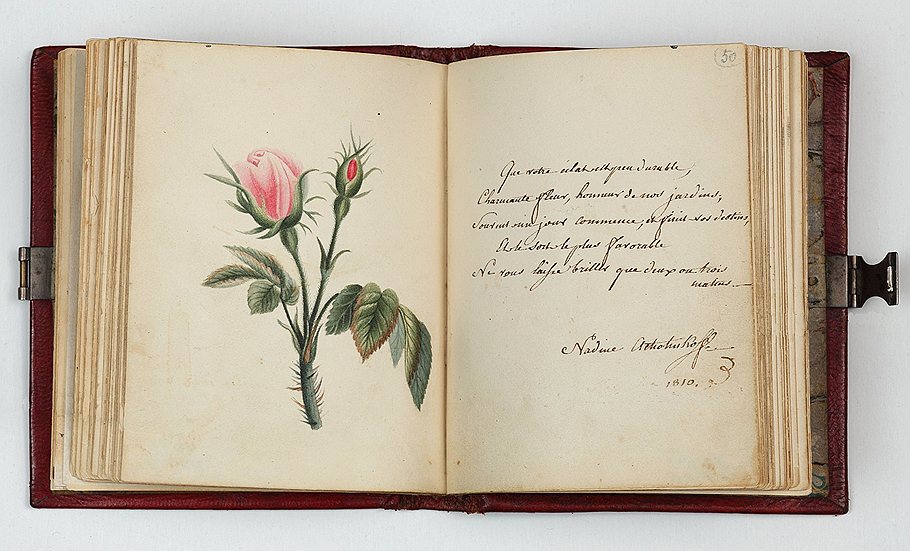 50
Que votre éclat est peu durable,
Charmante fleur, honneur de nos jardins,
Souvent un jour commence, et finit vos destins,
Et le sort le plus favorable
Ne vous laisse briller que deux ou trois
matins.
Nadine
1810.